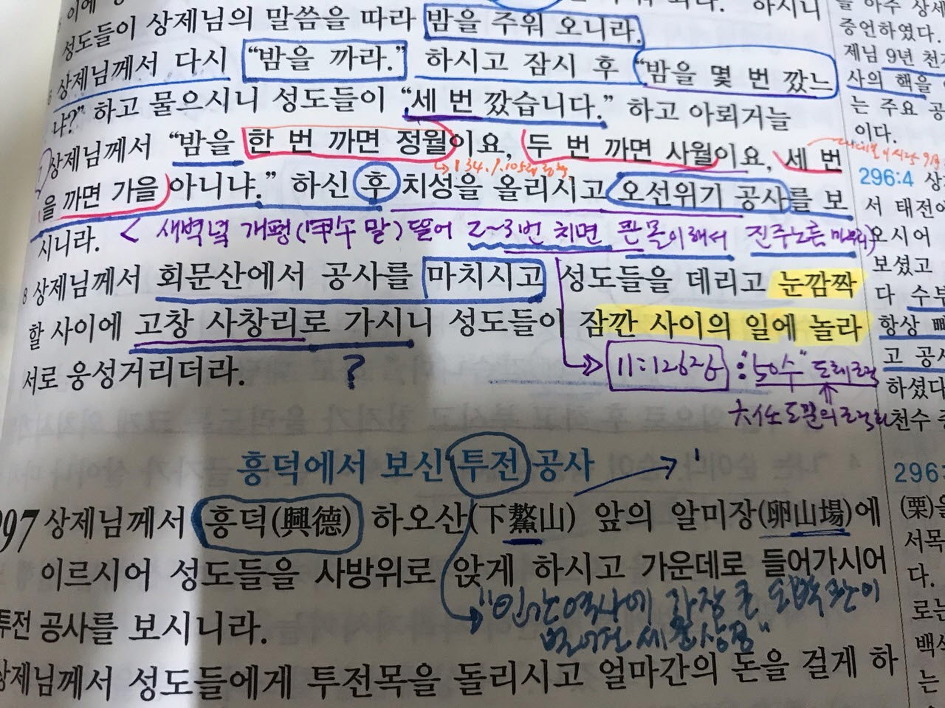 성도들이 상제님의 말씀을 따라 밤을 주워 오니라.
상제님께서 다시 “밤을 까라.” 하시고 잠시 후 “밤을 몇 번 깠느
냐?” 하고 물으시니 성도들이 “세 번 깠습니다.” 하고 아뢰거늘
상제님께서 “밤을 한 번 까면 정월이요, 두 번 까면 사월이요, 세 번
을 까면 가을 아니냐.” 하신 후 치성을 올리시고 오선위기 공사를 보
시니라.
< 새벽녘 개평(甲午 말) 뜯어 2~3번 치면 판몫이 해서 진주노름
8 상제님께서 회문산에서 공사를 마치시고 성도들을 데리고 눈깜짝
할 사이에 고창 사창리로 가시니 성도들이 잠깐 사이의 일에 놀라
서로 웅성거리더라.
?
11:126:2
흥덕에서 보신 투전 공사
297 상제님께서 흥덕(興德) 하오산(下鰲山) 앞의 알미장(卵山場)에
이르시어 성도들을 사방위로 앉게 하시고 가운데로 들어가시어
투전 공사를 보시니라.
“인간역사에 가장 큰 도박판이
벌어진 세
상제님께서 성도들에게 투전목을 돌리시고 얼마간의 돈을 걸게 하
증언하였다.
제님 9년 천
사의 핵을
는 주요 공
이다.
296:4 상
서 태전
오시어
보셨고
다 수부
항상
고 공사
하셨다
천수
296:
(栗)을
서목
다.
로는
백석
는